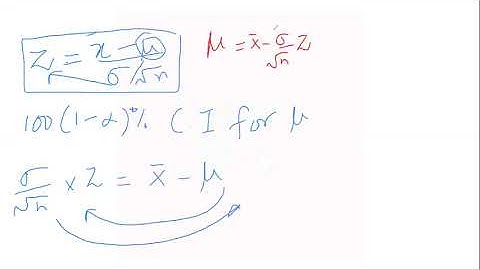 Z = x - μ / σ/√n
μ = x̄ - σ/√n Z
100(1-α)% CI for μ
σ/√n × Z = x̄ - μ